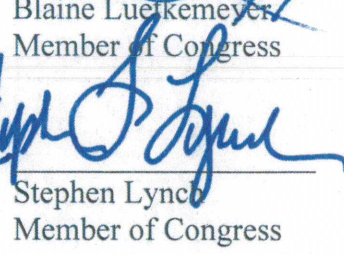 Blaine Luetkemeyer
Member of Congress
Stephen Lynch
Member of Congress